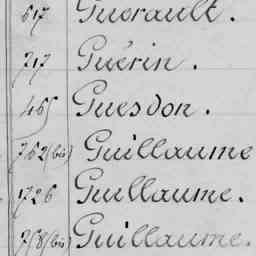 617 Guérault.
717 Guérin.
465 Guesdon.
762 (bis) Guillaume
1726 Guillaume.
758 (bis) Guillaume.